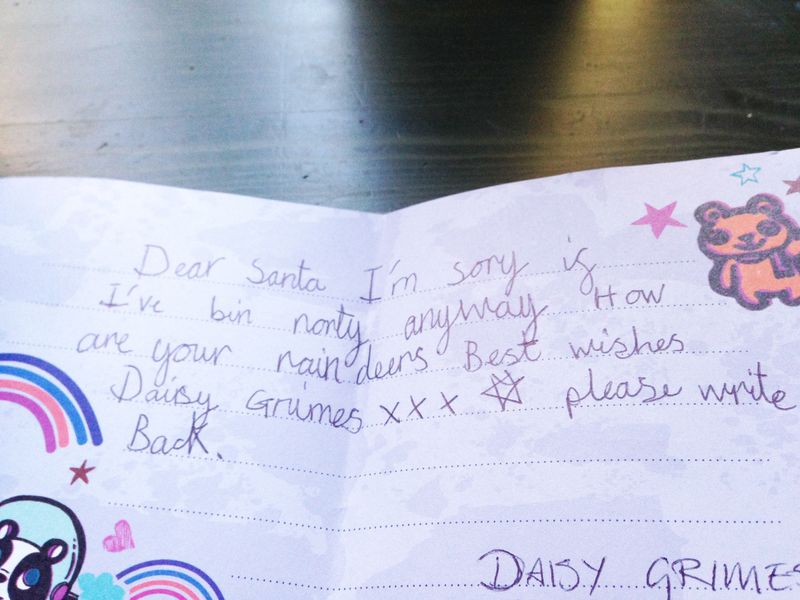 Dear Santa I'm sory is
I've bin nonty anyway How
are your raindeers Best wishes
Daisy Grimes xxx ☆ please write
Back.
DAISY GRIMES